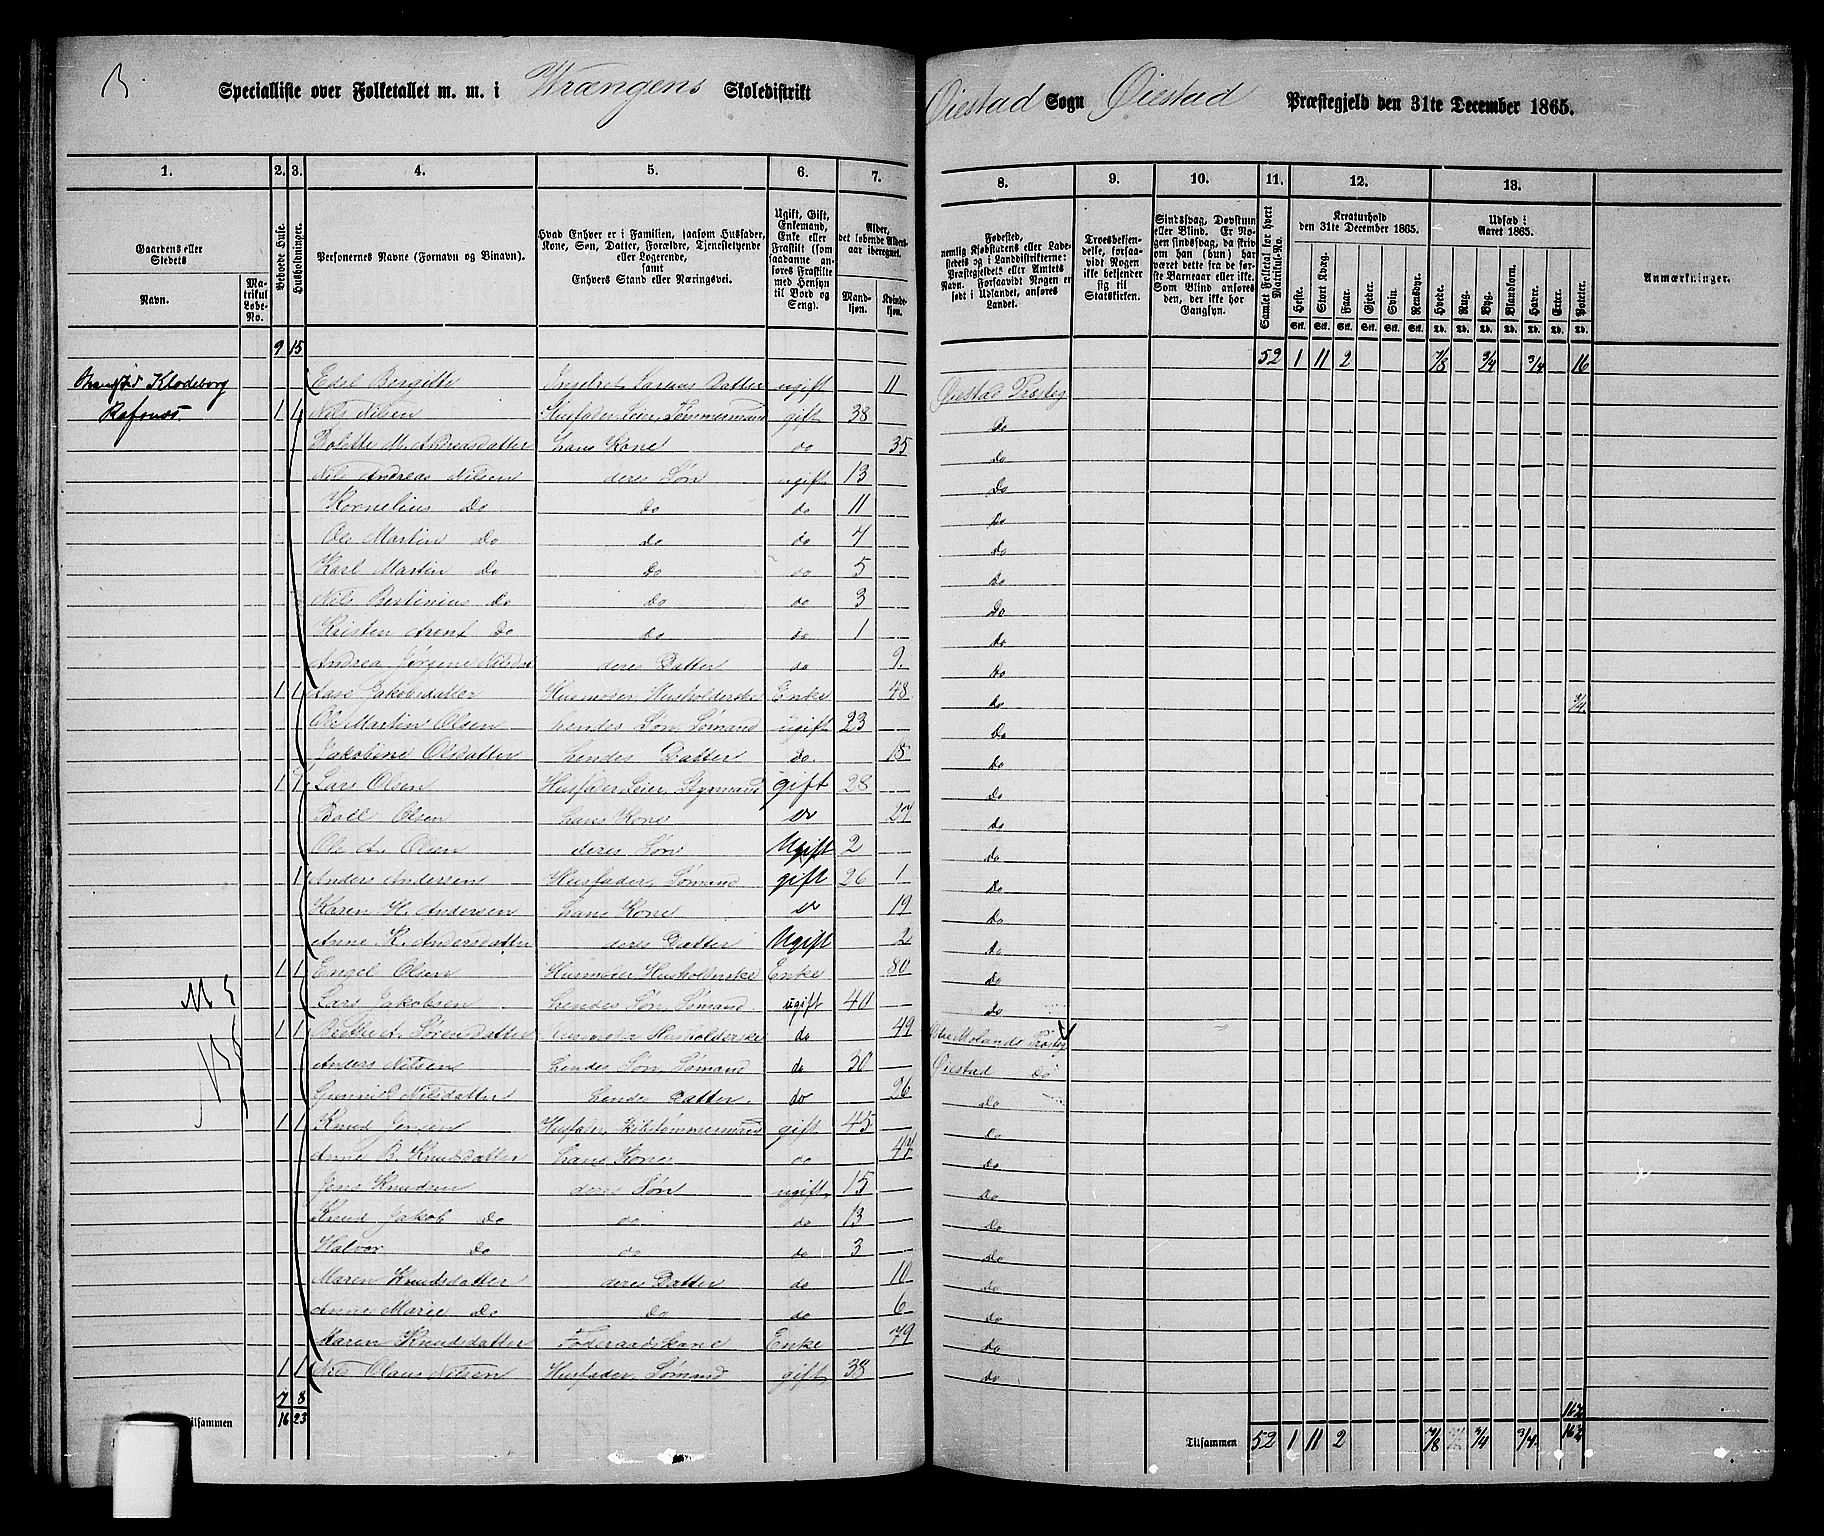 Specialliste over Folketallet m. m. i Wrængens Skoledistrikt
Øiestad Sogn Øiestad Præstegjeld den 31te December 1865.
1. 2. 3. 4. 5. 6. 7. 8. 9. 10. 11. 12. 13.
Gaardens eller Stedets Navn.
Matrikul Løbe-No.
Beboede Huse.
Husholdninger.
Personernes Navne (Fornavn og Binavn).
Hvad Enhver er i Familien, saasom Husfader, Kone, Søn, Datter, Forældre, Tjenestetyende eller Logerende, samt Enhvers Stand eller Næringsvei.
Ugift, Gift, Enkemand, Enke eller Fraskilt (som saadanne anføres Fraskilte med Hensyn til Bord og Seng).
Alder, det løbende Alders-aar iberegnet.
Mandkjøn. Kvindekjøn.
Fødested, nemlig Kjøbstadens eller Ladestedets eller i Landdistrikterne: Præstegjeldets eller Amtets Navn. Forsaavidt Nogen er født i Udlandet, anføres Landet.
Troesbekjendelse, forsaavidt Nogen ikke bekjender sig til Statskirken.
Sindssvag, Døvstum eller Blind. Er Nogen sindssvag, da skriv om han (hun) har været dette fra de første Barneaar eller ikke. Som Blind anføres den, der ikke har Gangsyn.
Samlet Folketal for hvert Matrikul-No.
Kreaturhold den 31te December 1865.
Heste. Stort Kvæg. Faar. Gjeder. Svin. Rensdyr.
Udsæd i Aaret 1865.
Hvede. Rug. Byg. Blandkorn. Havre. Erter. Poteter.
Anmærkninger.
9 15 52 1 11 2 7/8 3/4 3/4 16
Klodeborg Edel Bergitte Datter ugift 11 Øiestad Præsteg
1 1 Nils Nilsen Husfader, Leier, Tømmermand gift 38 Do
Andreasdatter hans Kone do 35 Do
Nils Andreas Nilsen deres Søn ugift 13 Do
Kornelius Do do do 11 Do
Ole Martin do do do 7 Do
Karl Martin do Do do 5 Do
Nils Bertinius Do do do 3 Do
Kristen Arent Do do do 1 Do
Andrea Jørgene deres Datter do 9 Do
1 1 Jakobsdatter Husmoder, Husholderske Enke 48 Do 3/4
Ole Martin Olsen hendes Søn, Sømand ugift 23 Do
Jakobine Olsdatter hendes Datter do 18 Do
1 1 Lars Olsen Husfader, Leier, Styrmand gift 28 Do
Olsen hans Kone do 27 Do
Ole A. Olsen deres Søn Ugift 2 Do
1 Anders Andersen Husfader, Sømand gift 26 1 Do
Karen H. Andersen hans Kone do 19 Do
Anne K. Andersdatter deres Datter Ugift 2 Do
1 1 Engel Olsen Husmoder, Husholderske Enke 80 Do
Lars Jakobsen hendes Søn, Sømand ugift 40 Do
1 1 Sørensdatter Husmoder Husholderske do 49 Præsteg
Anders Nilsen hendes Søn, Sømand do 30 Øiestad Do
Gunnild Nilsdatter hendes Datter do 26 Do
1 1 Knud Jensen Husfader, Skibstømmermand gift 45 Do
Anne B. Knudsdatter hans Kone do 47 Do
Jens Knudsen deres Søn ugift 15 Do
Knud Jakob Do do do 13 Do
Halvor Do do do 3 Do
Maren Knudsdatter deres Datter do 10 Do
Anne Marie Do Do do 6 Do
Maren Knudsdatter Føderaadskone Enke 79 Do
1 1 Nils Olaus Nilsen Husfader, Sømand gift 38 Do
7 8
Tilsammen 16 23
Tilsammen 52 1 11 2 7/8 3/4 3/4